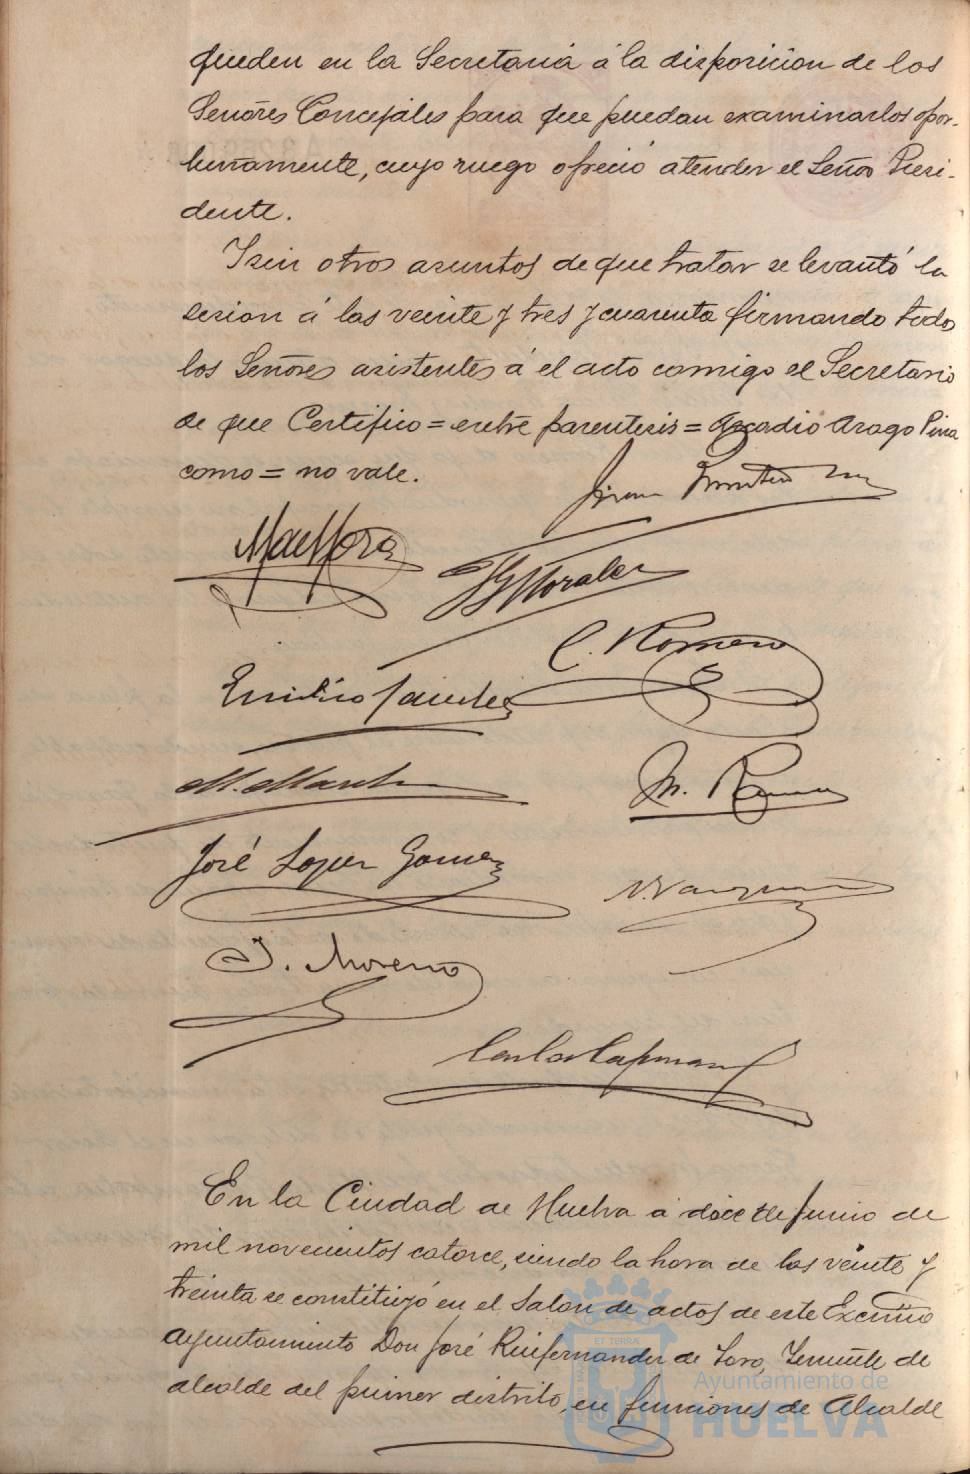 queden en la Secretaría á la disposicion de los
Señores Concejales para que puedan examinarlos opor-
tunamente, cuyo ruego ofreció atender el Señor Presi-
dente.
Y sin otros asuntos de que tratar se levantó la
sesion á las veinte y tres y cuarenta firmando todos
los Señores asistentes á el acto comigo el Secretario
de que Certifico = entre parentesis = Arcadio Arago Pina
como = no vale.
Mac Mora
Morales
C. Romero
Emilio
M.
M.
José Lopez Gomez
J. Moreno
Carlos
En la Ciudad de Huelva á doce de Junio de
mil novecientos catorce, siendo la hora de las veinte y
treinta se constituyó en el Salon de actos de este Excmo
Ayuntamiento Don José Ruifernandez de Toro, Teniente de
alcalde del primer distrito, en funciones de Alcalde
ET TERRAE
Ayuntamiento de
HUELVA